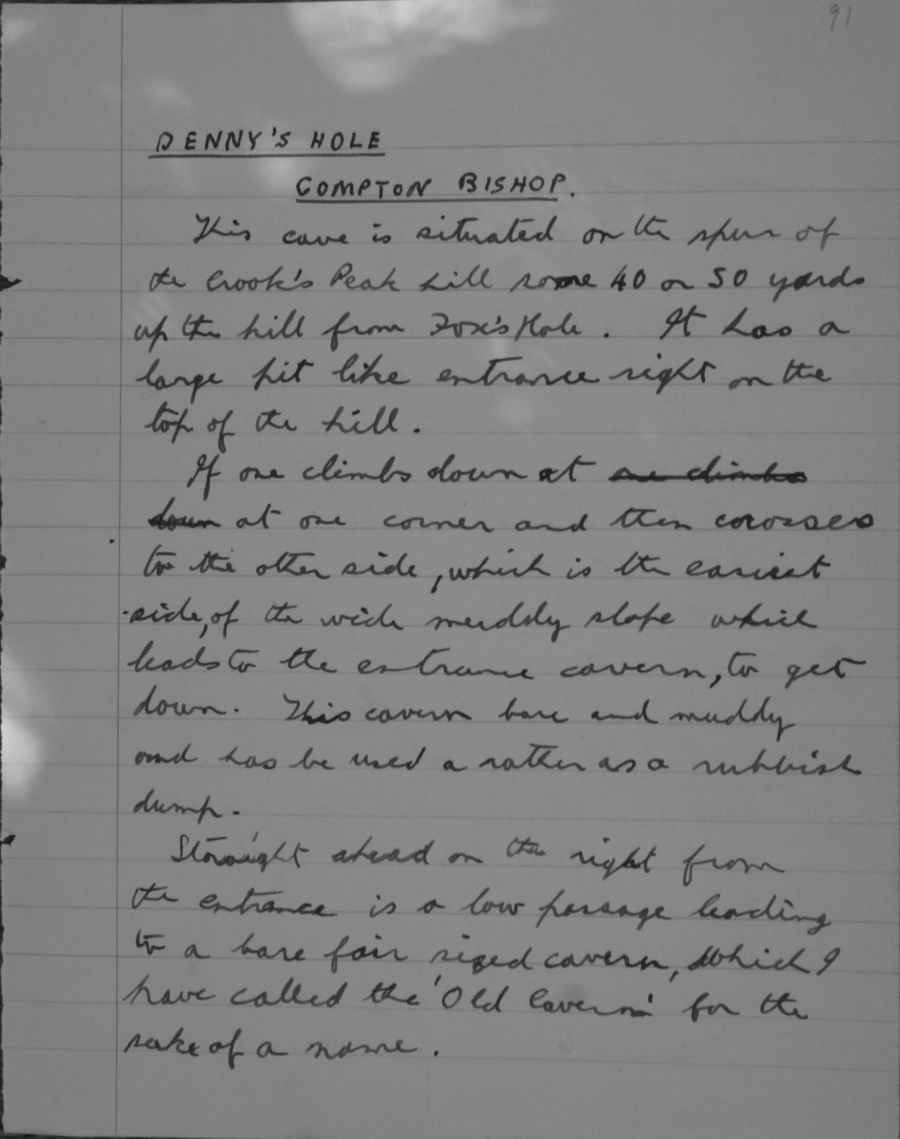 91
DENNY'S HOLE
COMPTON BISHOP.
This cave is situated on the spur of
the Crook's Peak hill some 40 or 50 yards
up the hill from Fox's Hole. It has a
large pit like entrance right on the
top of the hill.
If one climbs down at one climbs
down at one corner and then corosses
to the other side, which is the easiest
side, of the wide muddy slope which
leads to the entrance cavern, to get
down. This cavern bare and muddy
and has be used a rather as a rubbish
dump.
Straight ahead on the right from
the entrance is a low passage leading
to a bare fair sized cavern, which I
have called the 'Old Cavern' for the
sake of a name.